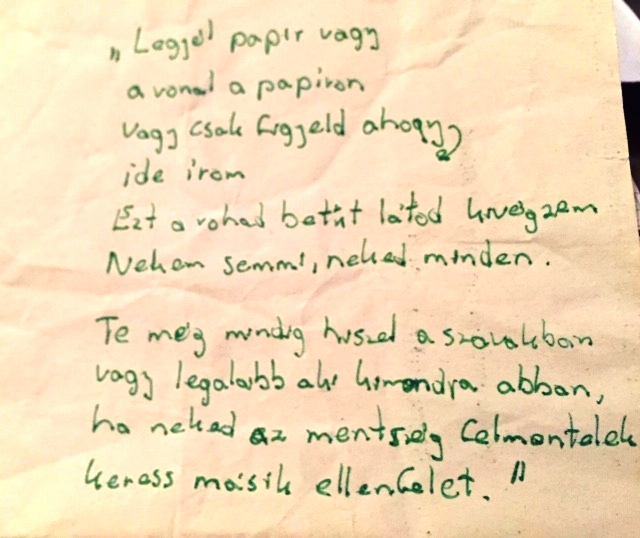 „Legyél papír vagy
a vonal a papíron
vagy csak figyeld ahogy
ide írom
Ezt a rohad betűt látod kivégzem
Nekem semmi, neked minden.
Te még mindig hiszel a szavakban
vagy legalább aki kimondja abban,
ha neked az mentség felmentelek
keress másik ellenfelet."